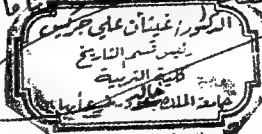 الدكتور/ غيثان علي جريس
رئيس قسم التاريخ
كلية التربية
جامعة الملك خالد - أبها